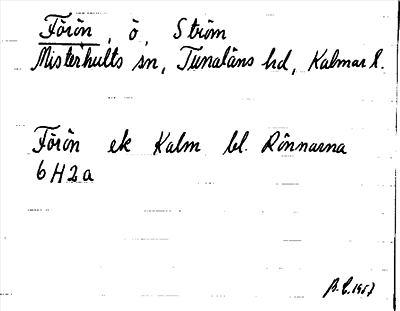 Förön, ö, Ström
Misterhults sn, Tunaläns hd, Kalmar l.
Förön ek Kalm bl. Rönnarna
6H2a
B.E. 1957